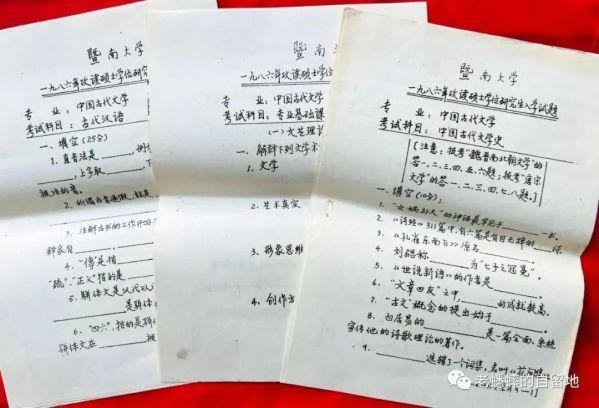 暨南大学
一九八六年攻读硕士学位研究
专 业：中国古代文学
考试科目：古代汉语
一、填空（25分）
1. 直音法是
上字取
被注的音。
3. 注解古书的工作开始于
4. “传”是指
疏”、“正义”指的是
5. 骈体文是从汉代以
是骈体
6. “四六”，指的是骈体
骈体文在
暨南
一九八六年攻读硕士学位
专 业：中国古代文学
考试科目：专业基础课
（一）文艺理论
一、解释下列文学术
1. 文学
2. 艺术真实
3. 形象思维
4. 创作方
暨南大学
一九八六年攻读硕士学位研究生入学试题
专 业：中国古代文学
考试科目：中国古代文学史
[注意：报考“魏晋南北朝文学”的
答一、二、三、四、五、六题；报考“唐宋
文学”的答一、二、三、四、七、八题。]
一、填空（10分）：
1. “女娲补天”的神话最早见于 一书。
2. 《诗经》311篇中，有六篇是有目无辞的 诗。
3. 《孔雀东南飞》原名 。
4. 刘勰称 为“七子之冠冕”。
5. 《世说新语》的作者是 。
6. “文章四友”之中， 的成就较高。
7. “古文”概念的提出始于 。
8. 白居易的 是一篇全面、系统
宣传他的诗歌理论的著作。
9. 选辑了一个词集，名叫《花间集
老蟋蟀的自留地